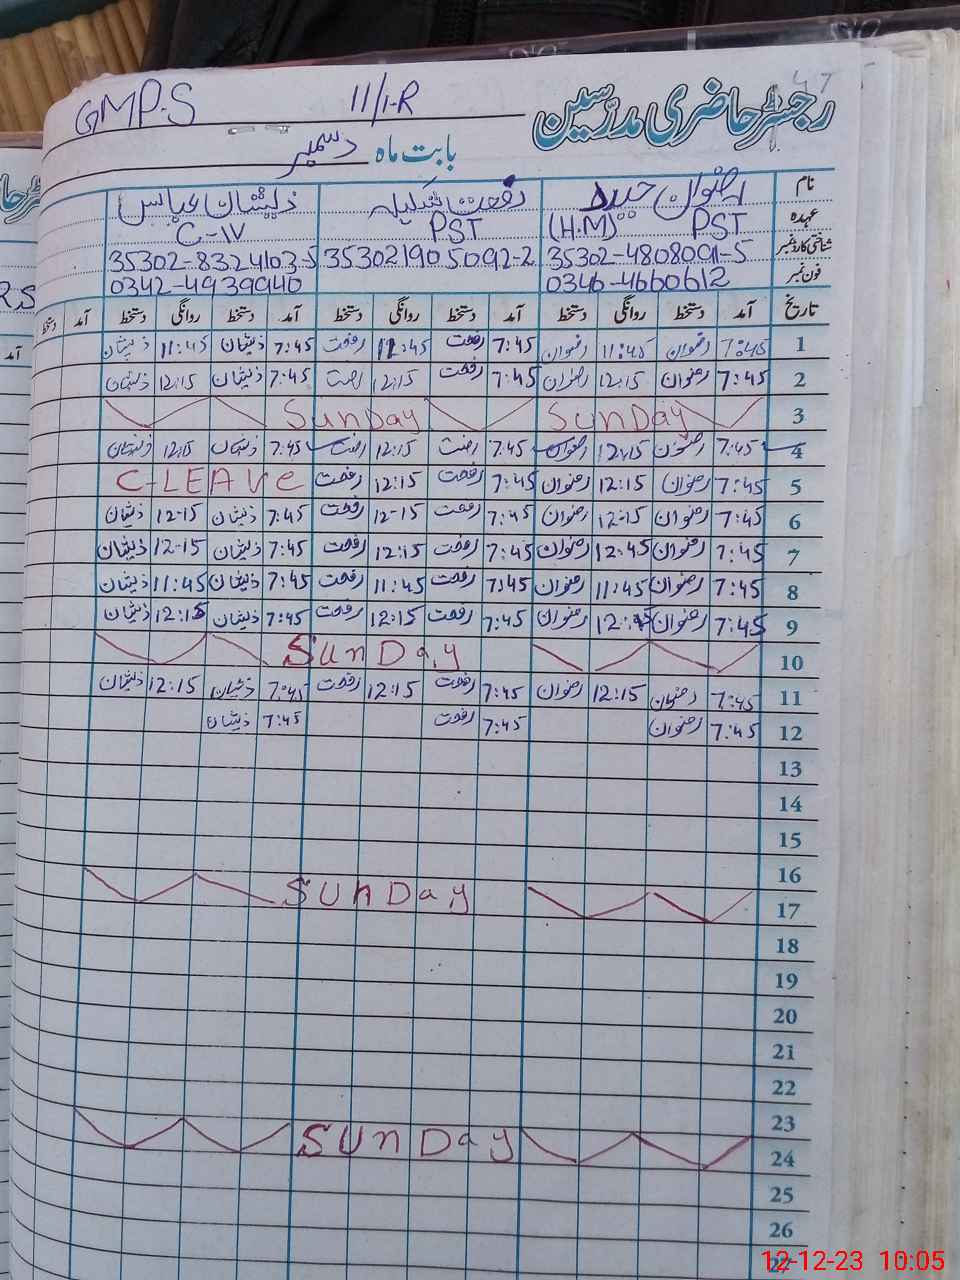 47
GMP.S 11/1-R رجسٹر حاضری مدرسین
بابت ماہ دسمبر
نام رضوان حیدر رفعت شکیلہ ذیشان عباس
عہدہ PST (H.M) PST C-IV
شناختی کارڈ نمبر 35302-4808091-5 353021905092-2 35302-8324103-5
فون نمبر 0346-4660612 0342-4939940
تاریخ آمد دستخط روانگی دستخط آمد دستخط روانگی دستخط آمد دستخط روانگی دستخط آمد دستخط
1 7:45 رضوان 11:45 رضوان 7:45 رفعت 11:45 رفعت 7:45 ذیشان 11:45 ذیشان
2 7:45 رضوان 12:15 رضوان 7:45 رفعت 12:15 رفعت 7:45 ذیشان 12:15 ذیشان
3 Sunday Sunday
4 7:45 رضوان 12:15 رضوان 7:45 رفعت 12:15 رفعت 7:45 ذیشان 12:15 ذیشان
5 7:45 رضوان 12:15 رضوان 7:45 رفعت 12:15 رفعت C-LEAVe
6 7:45 رضوان 12-15 رضوان 7:45 رفعت 12-15 رفعت 7:45 ذیشان 12-15 ذیشان
7 7:45 رضوان 12:45 رضوان 7:45 رفعت 12:15 رفعت 7:45 ذیشان 12-15 ذیشان
8 7:45 رضوان 11:45 رضوان 7:45 رفعت 11:45 رفعت 7:45 ذیشان 11:45 ذیشان
9 7:45 رضوان رضوان 7:45 رفعت 12:15 رفعت 7:45 ذیشان 12:15 ذیشان
10 SunDay
11 7:45 رضوان 12:15 رضوان 7:45 رفعت 12:15 رفعت 7:45 ذیشان 12:15 ذیشان
12 7:45 رضوان 7:45 رفعت 7:45 ذیشان
13
14
15
16
17 SUnDay
18
19
20
21
22
23
24 SUnDay
25
26
27
12-12-23 10:05